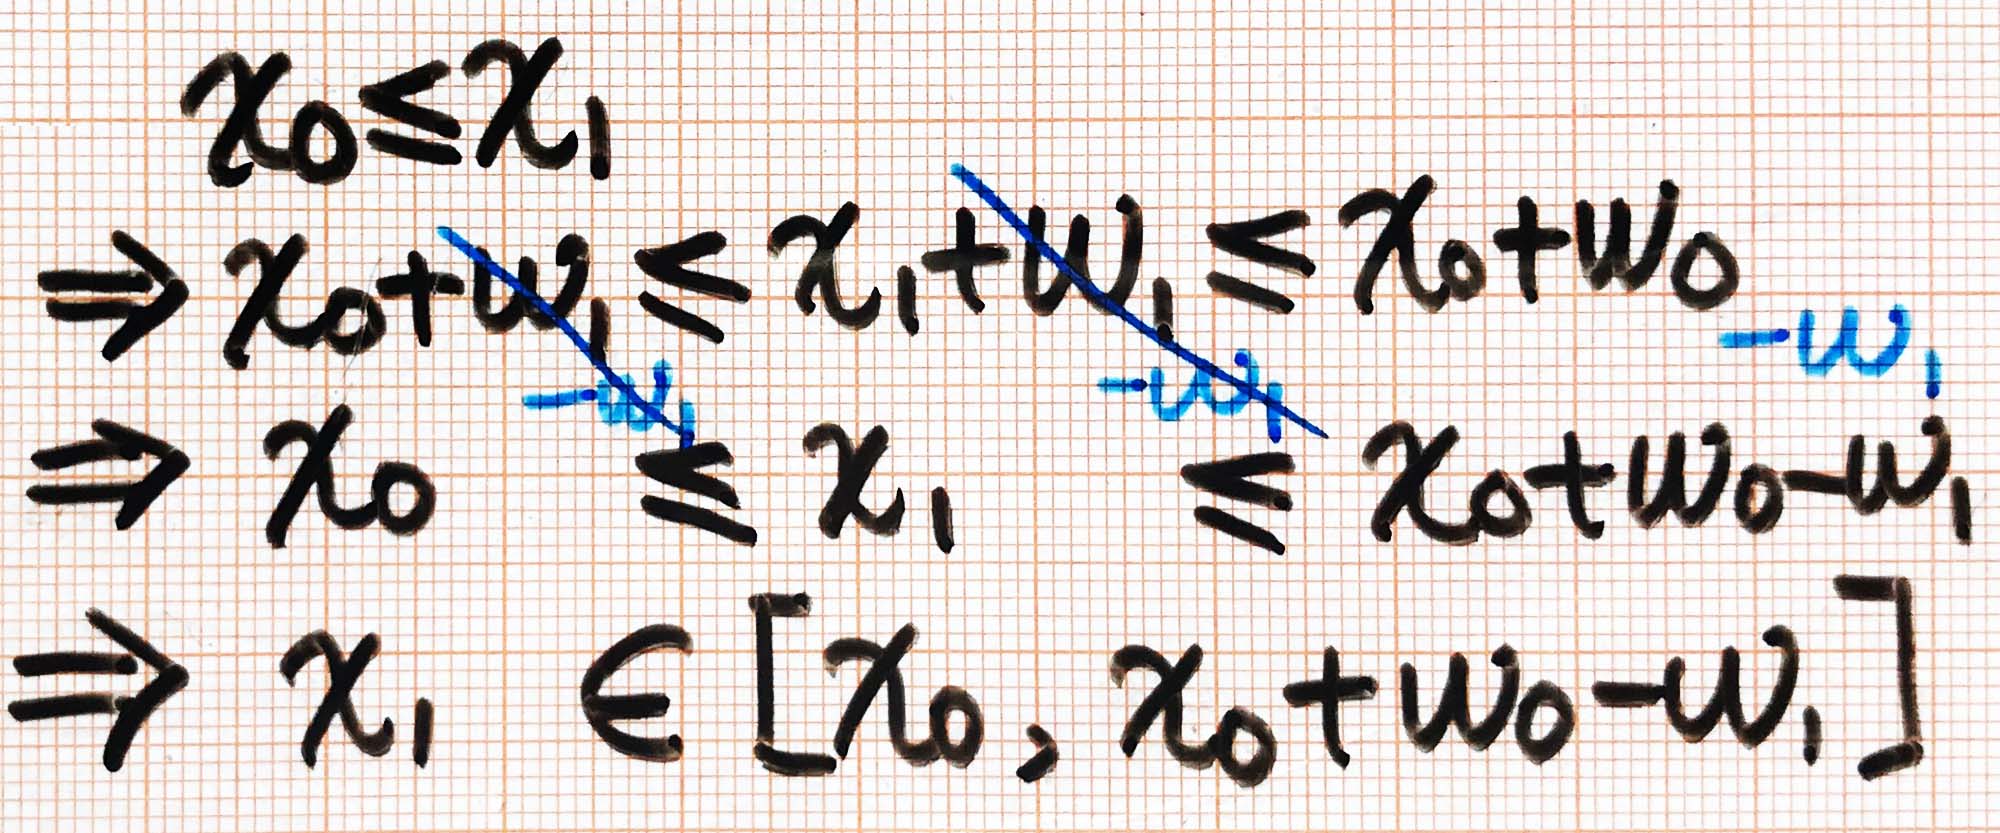 x₀ ≤ x₁
⇒ x₀ + w₁ ≤ x₁ + w₁ ≤ x₀ + w₀
-w₁ -w₁ -w₁
⇒ x₀ ≤ x₁ ≤ x₀ + w₀ - w₁
⇒ x₁ ∈ [x₀, x₀ + w₀ - w₁]